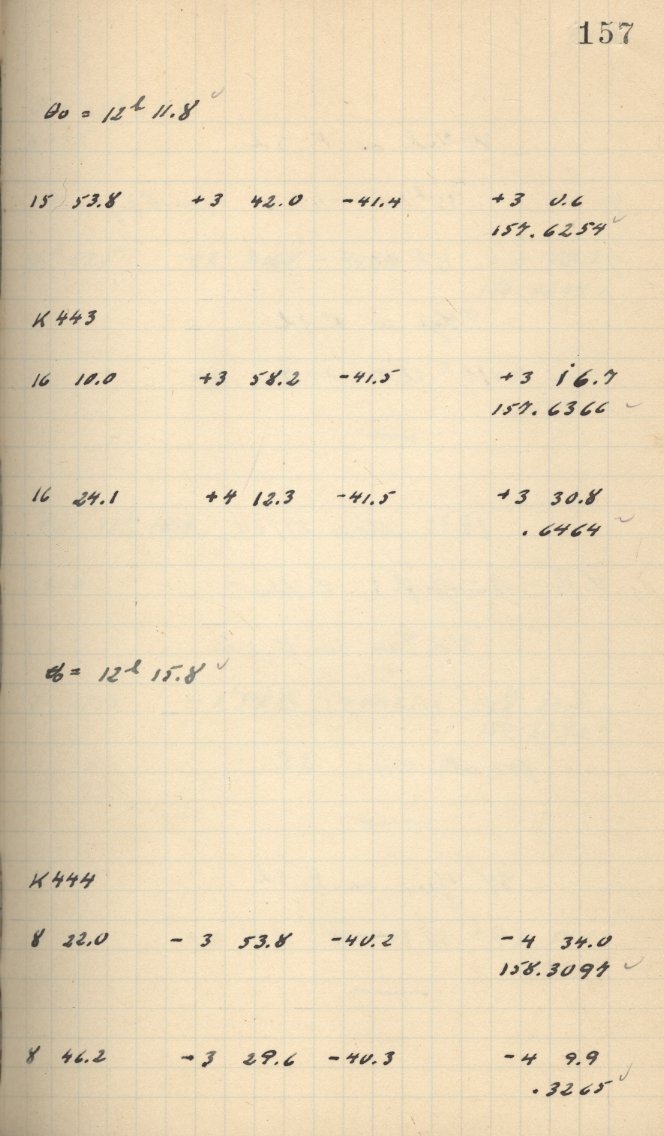 157
θ0 = 12h 11.8
15 53.8 +3 42.0 -41.4 +3 0.6
157.6254
K 443
16 10.0 +3 58.2 -41.5 +3 16.7
157.6366
16 24.1 +4 12.3 -41.5 +3 30.8
.6464
θ0 = 12h 15.8
K 444
8 22.0 - 3 53.8 -40.2 -4 34.0
158.3097
8 46.2 -3 29.6 -40.3 -4 9.9
.3265